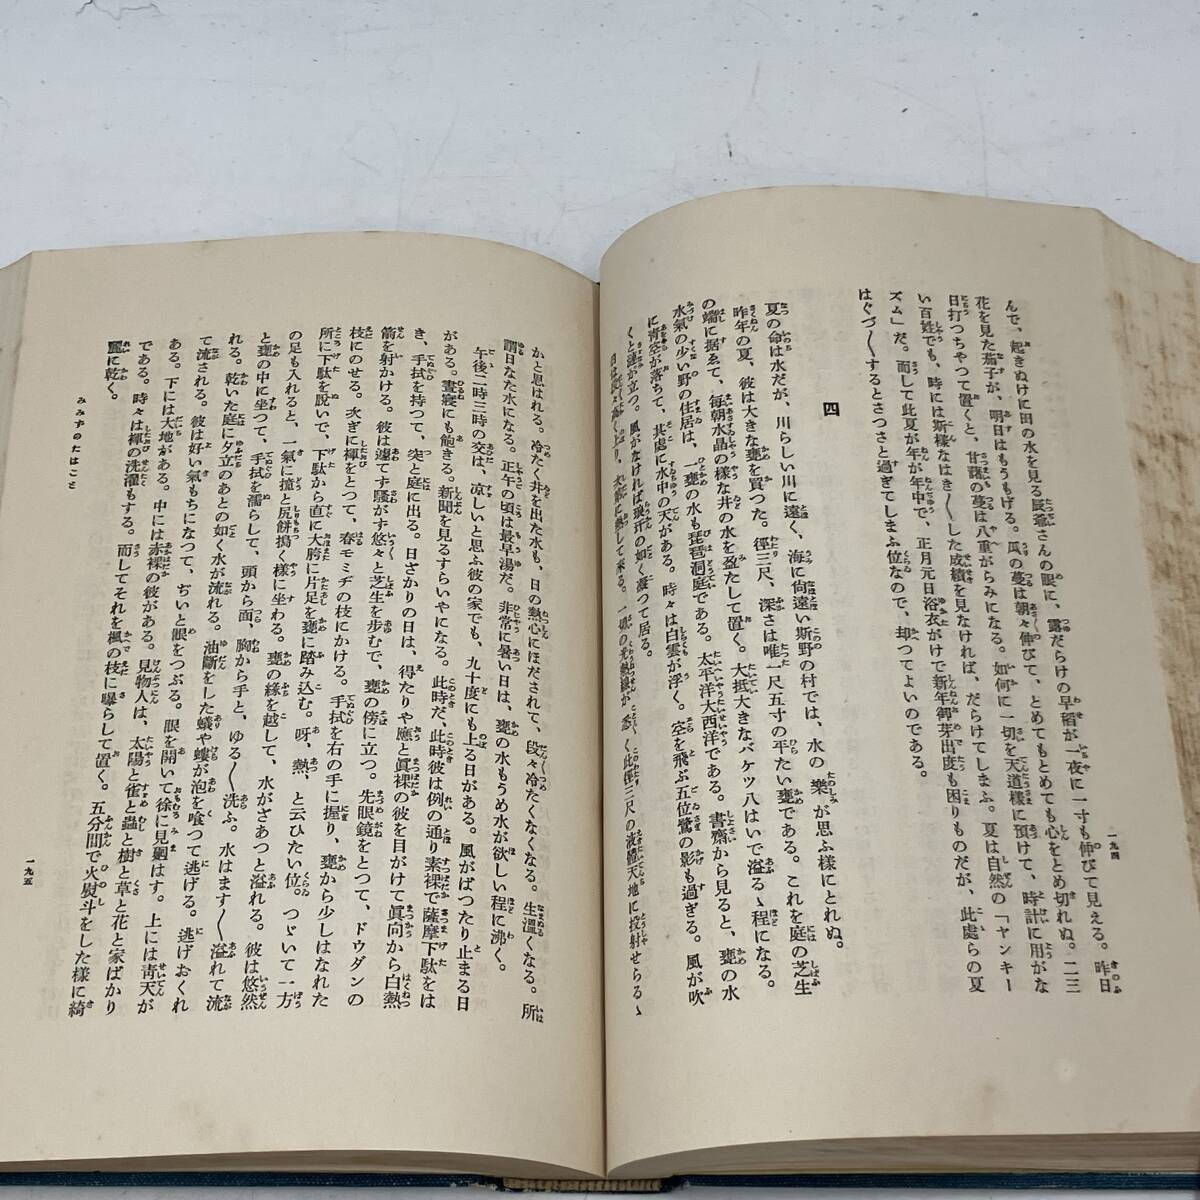 一九四
んで、起きぬけに田の水を見る辰爺さんの眼に、露だらけの早稻が一夜に一寸も伸びて見える。昨日
花を見た茄子が、明日はもうもげる。瓜の蔓は朝々伸びて、とめてもとめても心をとめ切れぬ。二三
日打つちやつて置くと、甘藷の蔓は八重がらみになる。如何に一切を天道樣に預けて、時計に用がな
い百姓でも、時には斯樣なはき〳〵した成績を見なければ、だらけてしまふ。夏は自然の「ヤンキー
ズム」だ。而して此夏が年が年中で、正月元日浴衣がけで新年御芽出度も困りものだが、此處らの夏
はぐづ〳〵するとさつさと過ぎてしまふ位なので、却つてよいのである。
四
夏の命は水だが、川らしい川に遠く、海に尙遠い斯野の村では、水の樂が思ふ樣にとれぬ。
昨年の夏、彼は大きな甕を買つた。徑三尺、深さは唯一尺五寸の平たい甕である。これを庭の芝生
の端に据ゑて、每朝水晶の樣な井の水を盈たして置く。大抵大きなバケツ八はいで溢るゝ程になる。
水氣の少い野の住居は、一甕の水も琵琶洞庭である。太平洋大西洋である。書齋から見ると、甕の水
に靑空が落ちて、其處に水中の天がある。時々は白雲が浮く。空を飛ぶ五位鷺の影も過ぎる。風が吹
くと漣が立つ。風がなければ琅玕の如く凝つて居る。
日は段々高く上り、次第に熱して來る。一切の光熱線が悉く此徑三尺の液體天地に投射せらるゝ
かと思はれる。冷たく井を出た水も、日の熱心にほだされて、段々冷たくなくなる。生溫くなる。所
謂日なた水になる。正午の頃は最早湯だ。非常に暑い日は、甕の水もうめ水が欲しい程に沸く。
午後二時三時の交は、涼しいと思ふ彼の家でも、九十度にも上る日がある。風がぱつたり止まる日
がある。晝寢にも飽きる。新聞を見るすらいやになる。此時だ、此時彼は例の通り素裸で薩摩下駄をは
き、手拭を持つて、突と庭に出る。日ざかりの日は、得たりや應と眞裸の彼を目がけて眞向から白熱
箭を射かける。彼は遽てず騷がず悠々と芝生を步むで、甕の傍に立つ。先眼鏡をとつて、ドウダンの
枝にのせる。次ぎに褌をとつて、春モミヂの枝にかける。手拭を右の手に握り、甕から少しはなれた
所に下駄を脫いで、下駄から直に大胯に片足を甕に踏み込む。呀、熱、と云ひたい位。つゞいて一方
の足も入れると、一氣に撞と尻餠搗く樣に坐わる。甕の緣を越して、水がざあつと溢れる。彼は悠然
と甕の中に坐つて、手拭を濡らして、頭から面、胸から手と、ゆる〳〵洗ふ。水はます〳〵溢れて流
れる。乾いた庭に夕立のあとの如く水が流れる。油斷をした蟻や螻が泡を喰つて逃げる。逃げおくれ
て流される。彼は好い氣もちになつて、ぢいと眼をつぶる。眼を開いて徐に見廻はす。上には靑天が
ある。下には大地がある。中には赤裸の彼がある。見物人は、太陽と雀と蟲と樹と草と花と家ばかり
である。時々は褌の洗濯もする。而してそれを楓の枝に曝らして置く。五分間で火熨斗をした樣に綺
麗に乾く。
みみずのたはこと
一九五